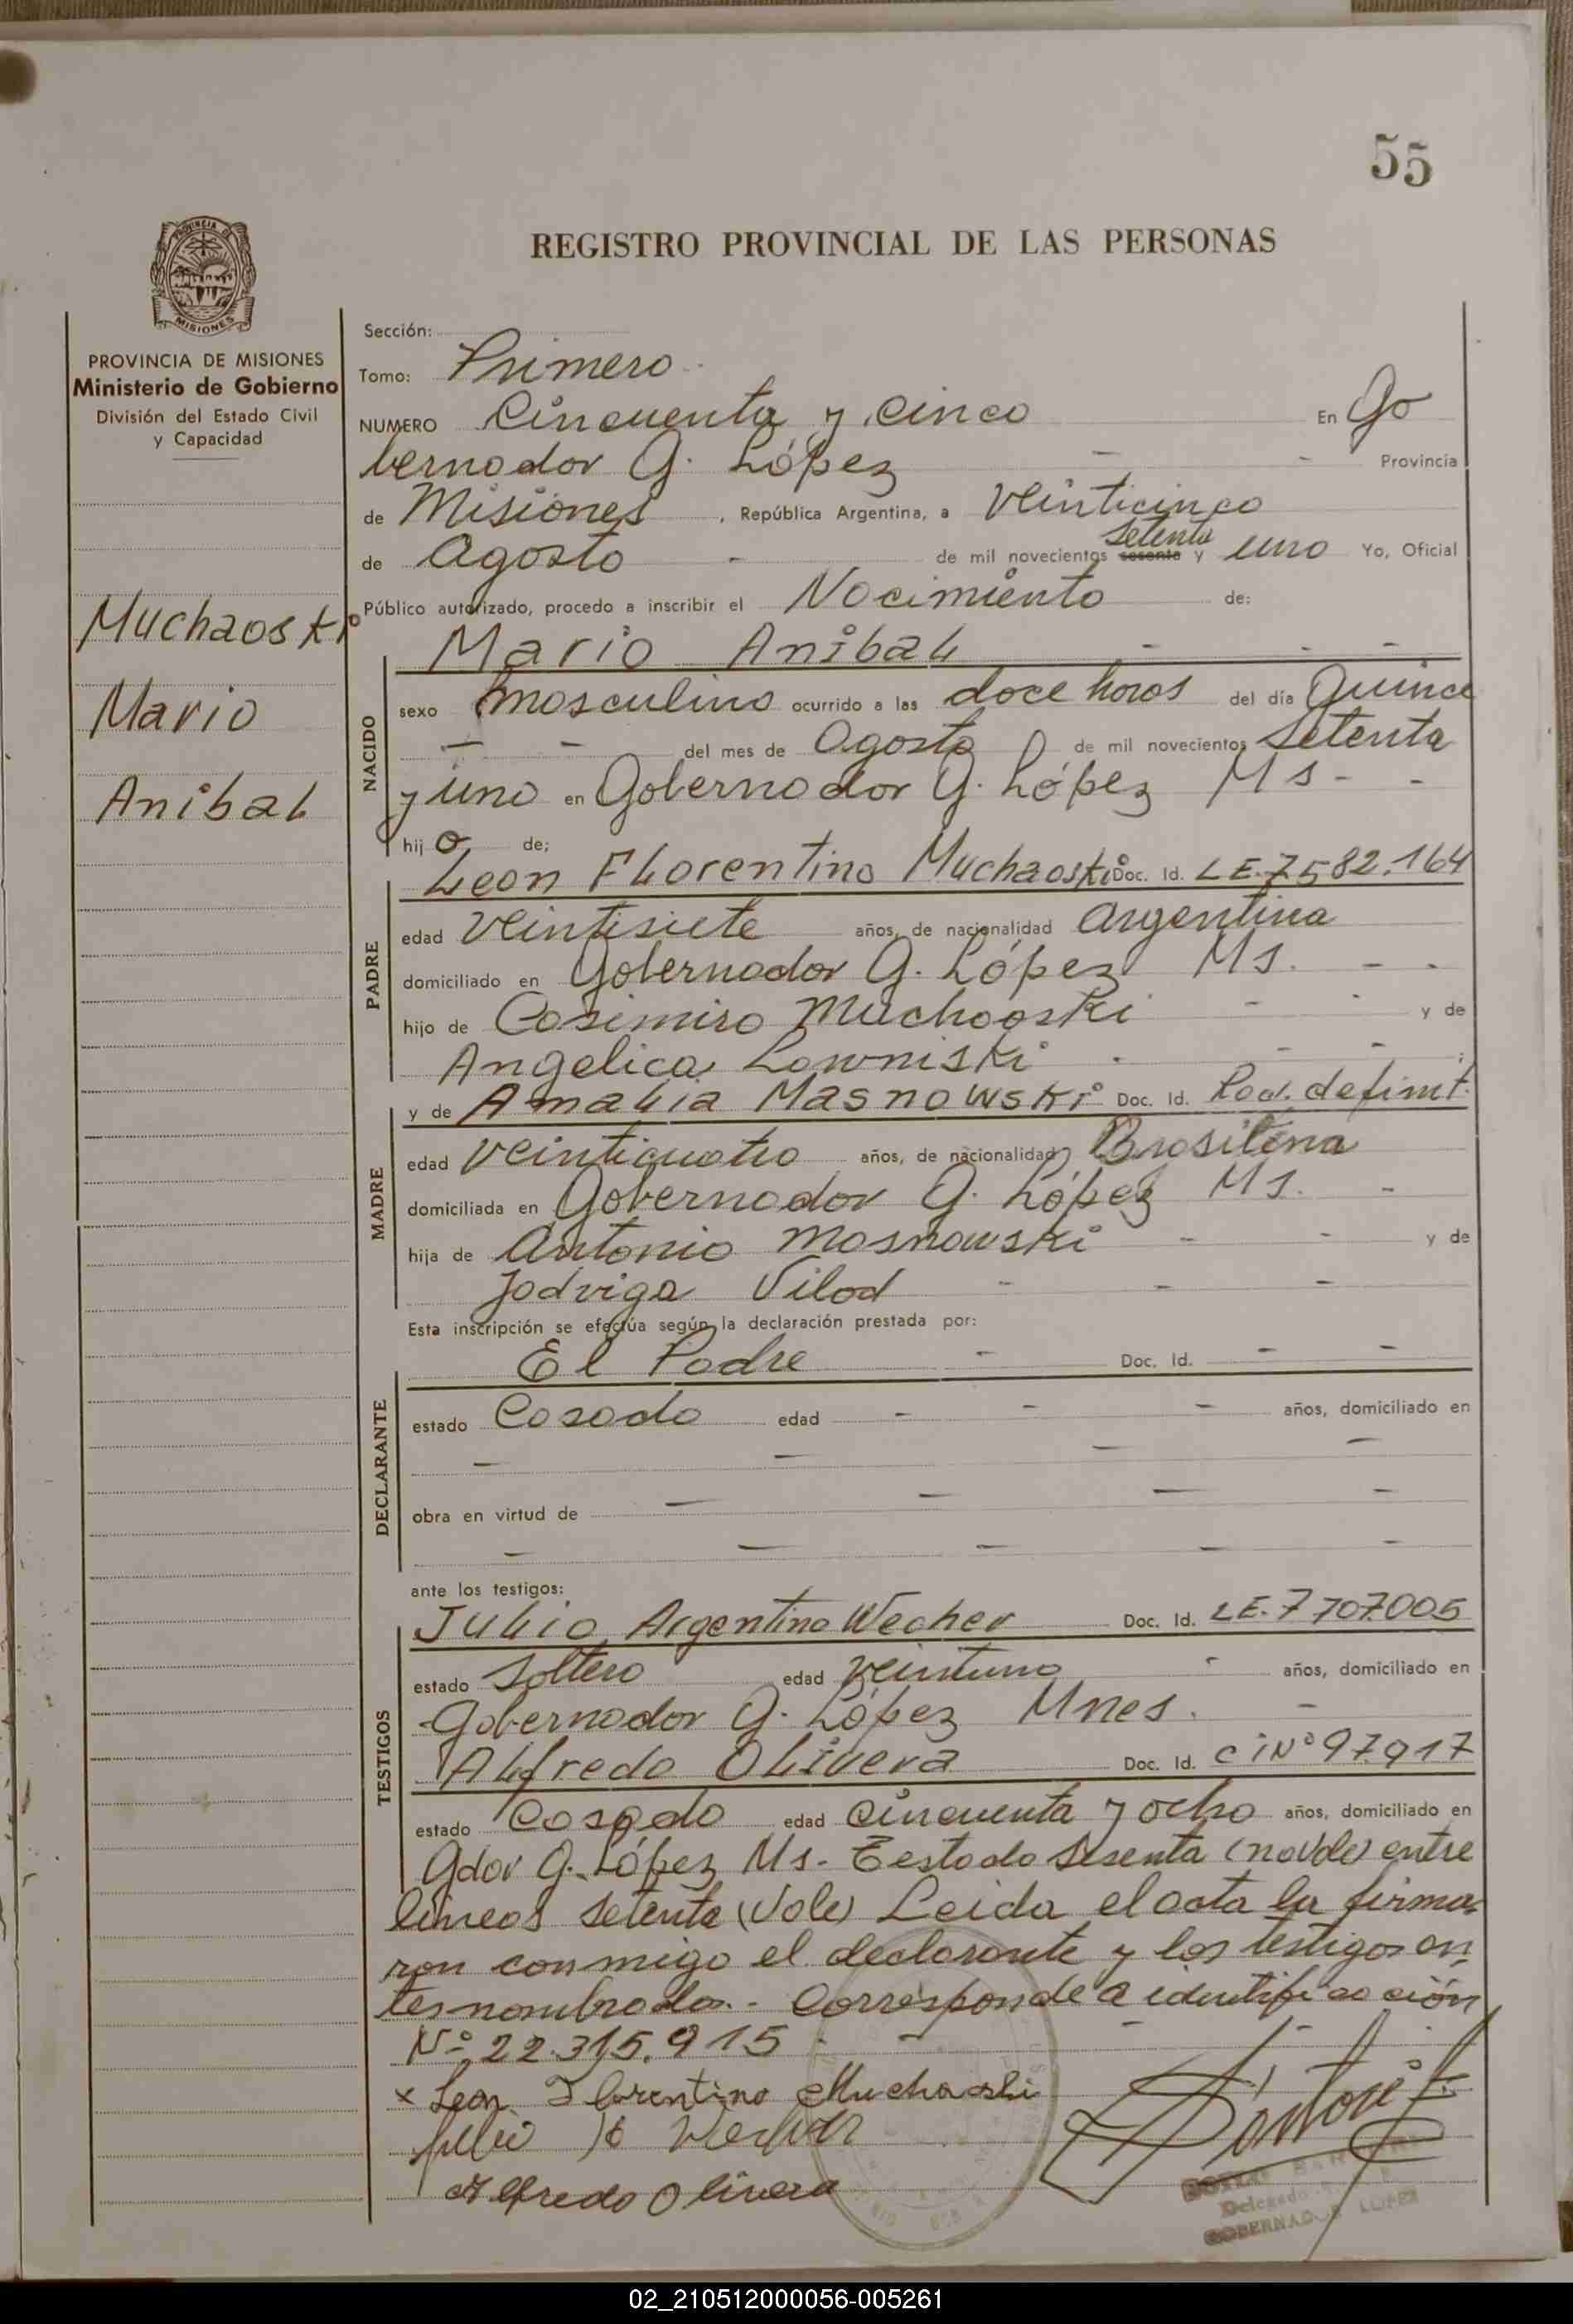 55
REGISTRO PROVINCIAL DE LAS PERSONAS
PROVINCIA DE MISIONES
MISIONES
PROVINCIA DE MISIONES
Ministerio de Gobierno
División del Estado Civil
y Capacidad
Muchaoski
Mario
Anibal
Sección:
Tomo: Primero
NUMERO Cincuenta y cinco En Go
bernador G. López - - Provincia
de Misiones, República Argentina, a Veinticinco
de Agosto - de mil novecientos sesenta setenta y uno Yo, Oficial
Público autorizado, procedo a inscribir el Nacimiento de:
Mario Anibal - - -
NACIDO
sexo masculino ocurrido a las doce horas del día Quince
- - del mes de Agosto de mil novecientos setenta
y uno en Gobernador G. López Ms - -
hijo de;
PADRE
Leon Florentino Muchaoski Doc. Id. LE.7582.164
edad Veintisiete años, de nacionalidad Argentina
domiciliado en Gobernador G. López Ms. - -
hijo de Casimiro Muchaoski - - y de
Angelica Lowniski - - -
MADRE
y de Amalia Masnowski Doc. Id. Rad. definit.
edad Veinticuatro años, de nacionalidad Brasilena
domiciliada en Gobernador G. López Ms. -
hija de Antonio Masnowski - - y de
Jadviga Vilod - - -
Esta inscripción se efectúa según la declaración prestada por:
DECLARANTE
El Padre - Doc. Id. - -
estado Casado edad - - - años, domiciliado en
- - - -
obra en virtud de - - - -
- - - - -
ante los testigos:
TESTIGOS
Julio Argentino Wecher Doc. Id. LE.7707005
estado Soltero edad Veintuno - años, domiciliado en
Gobernador G. López Mnes. -
Alfredo Olivera Doc. Id. CiNº97.917
estado Casado edad Cincuenta y ocho años, domiciliado en
Gdor G. López Ms- Testado sesenta (no Vale) entre
lineas setenta (Vale) Leida el acta la firma-
ron conmigo el declarante y los testigos an-
tes nombrados.- Corresponde a identificación
Nº 22.315.915 - - -
x Leon Florentino Muchaoski
Alfredo Olivera
Delegado
GOBERNADOR LOPEZ
02_210512000056-005261